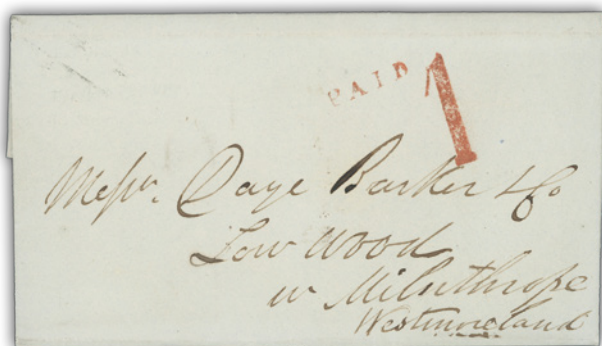 PAID 1
Messrs. Daye Barker & Co
Low Wood
nr Milnthrope
Westmoreland